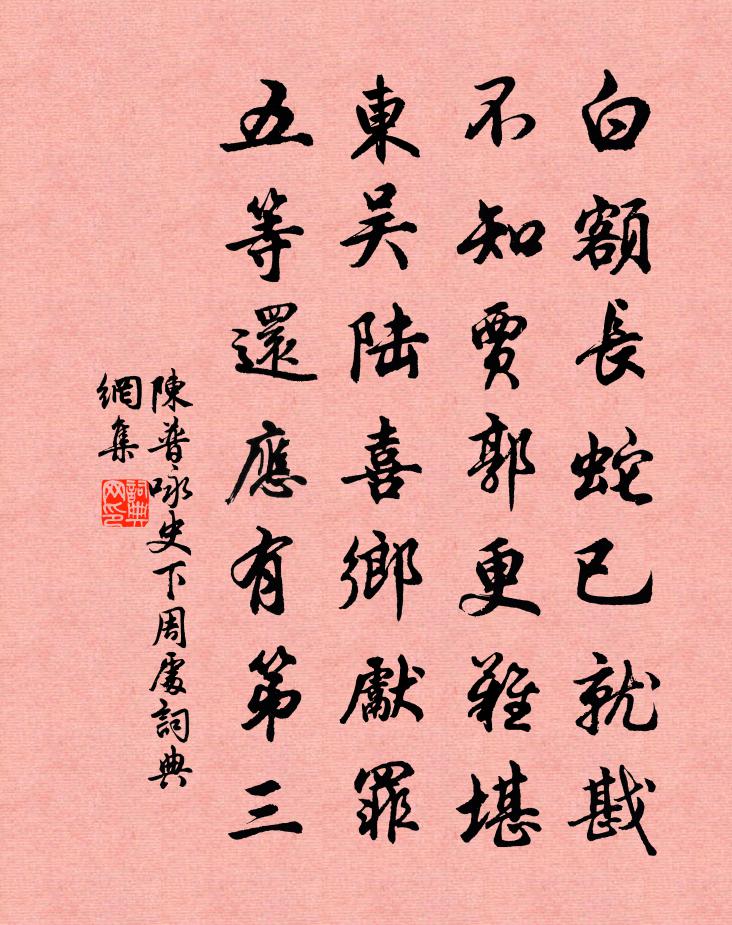 白額長蛇已就戡
不知賈郭更難堪
東吳陸喜鄉獻罪
五等還應有第三
陳普咏史下周處詞典
網集
詞典
网印